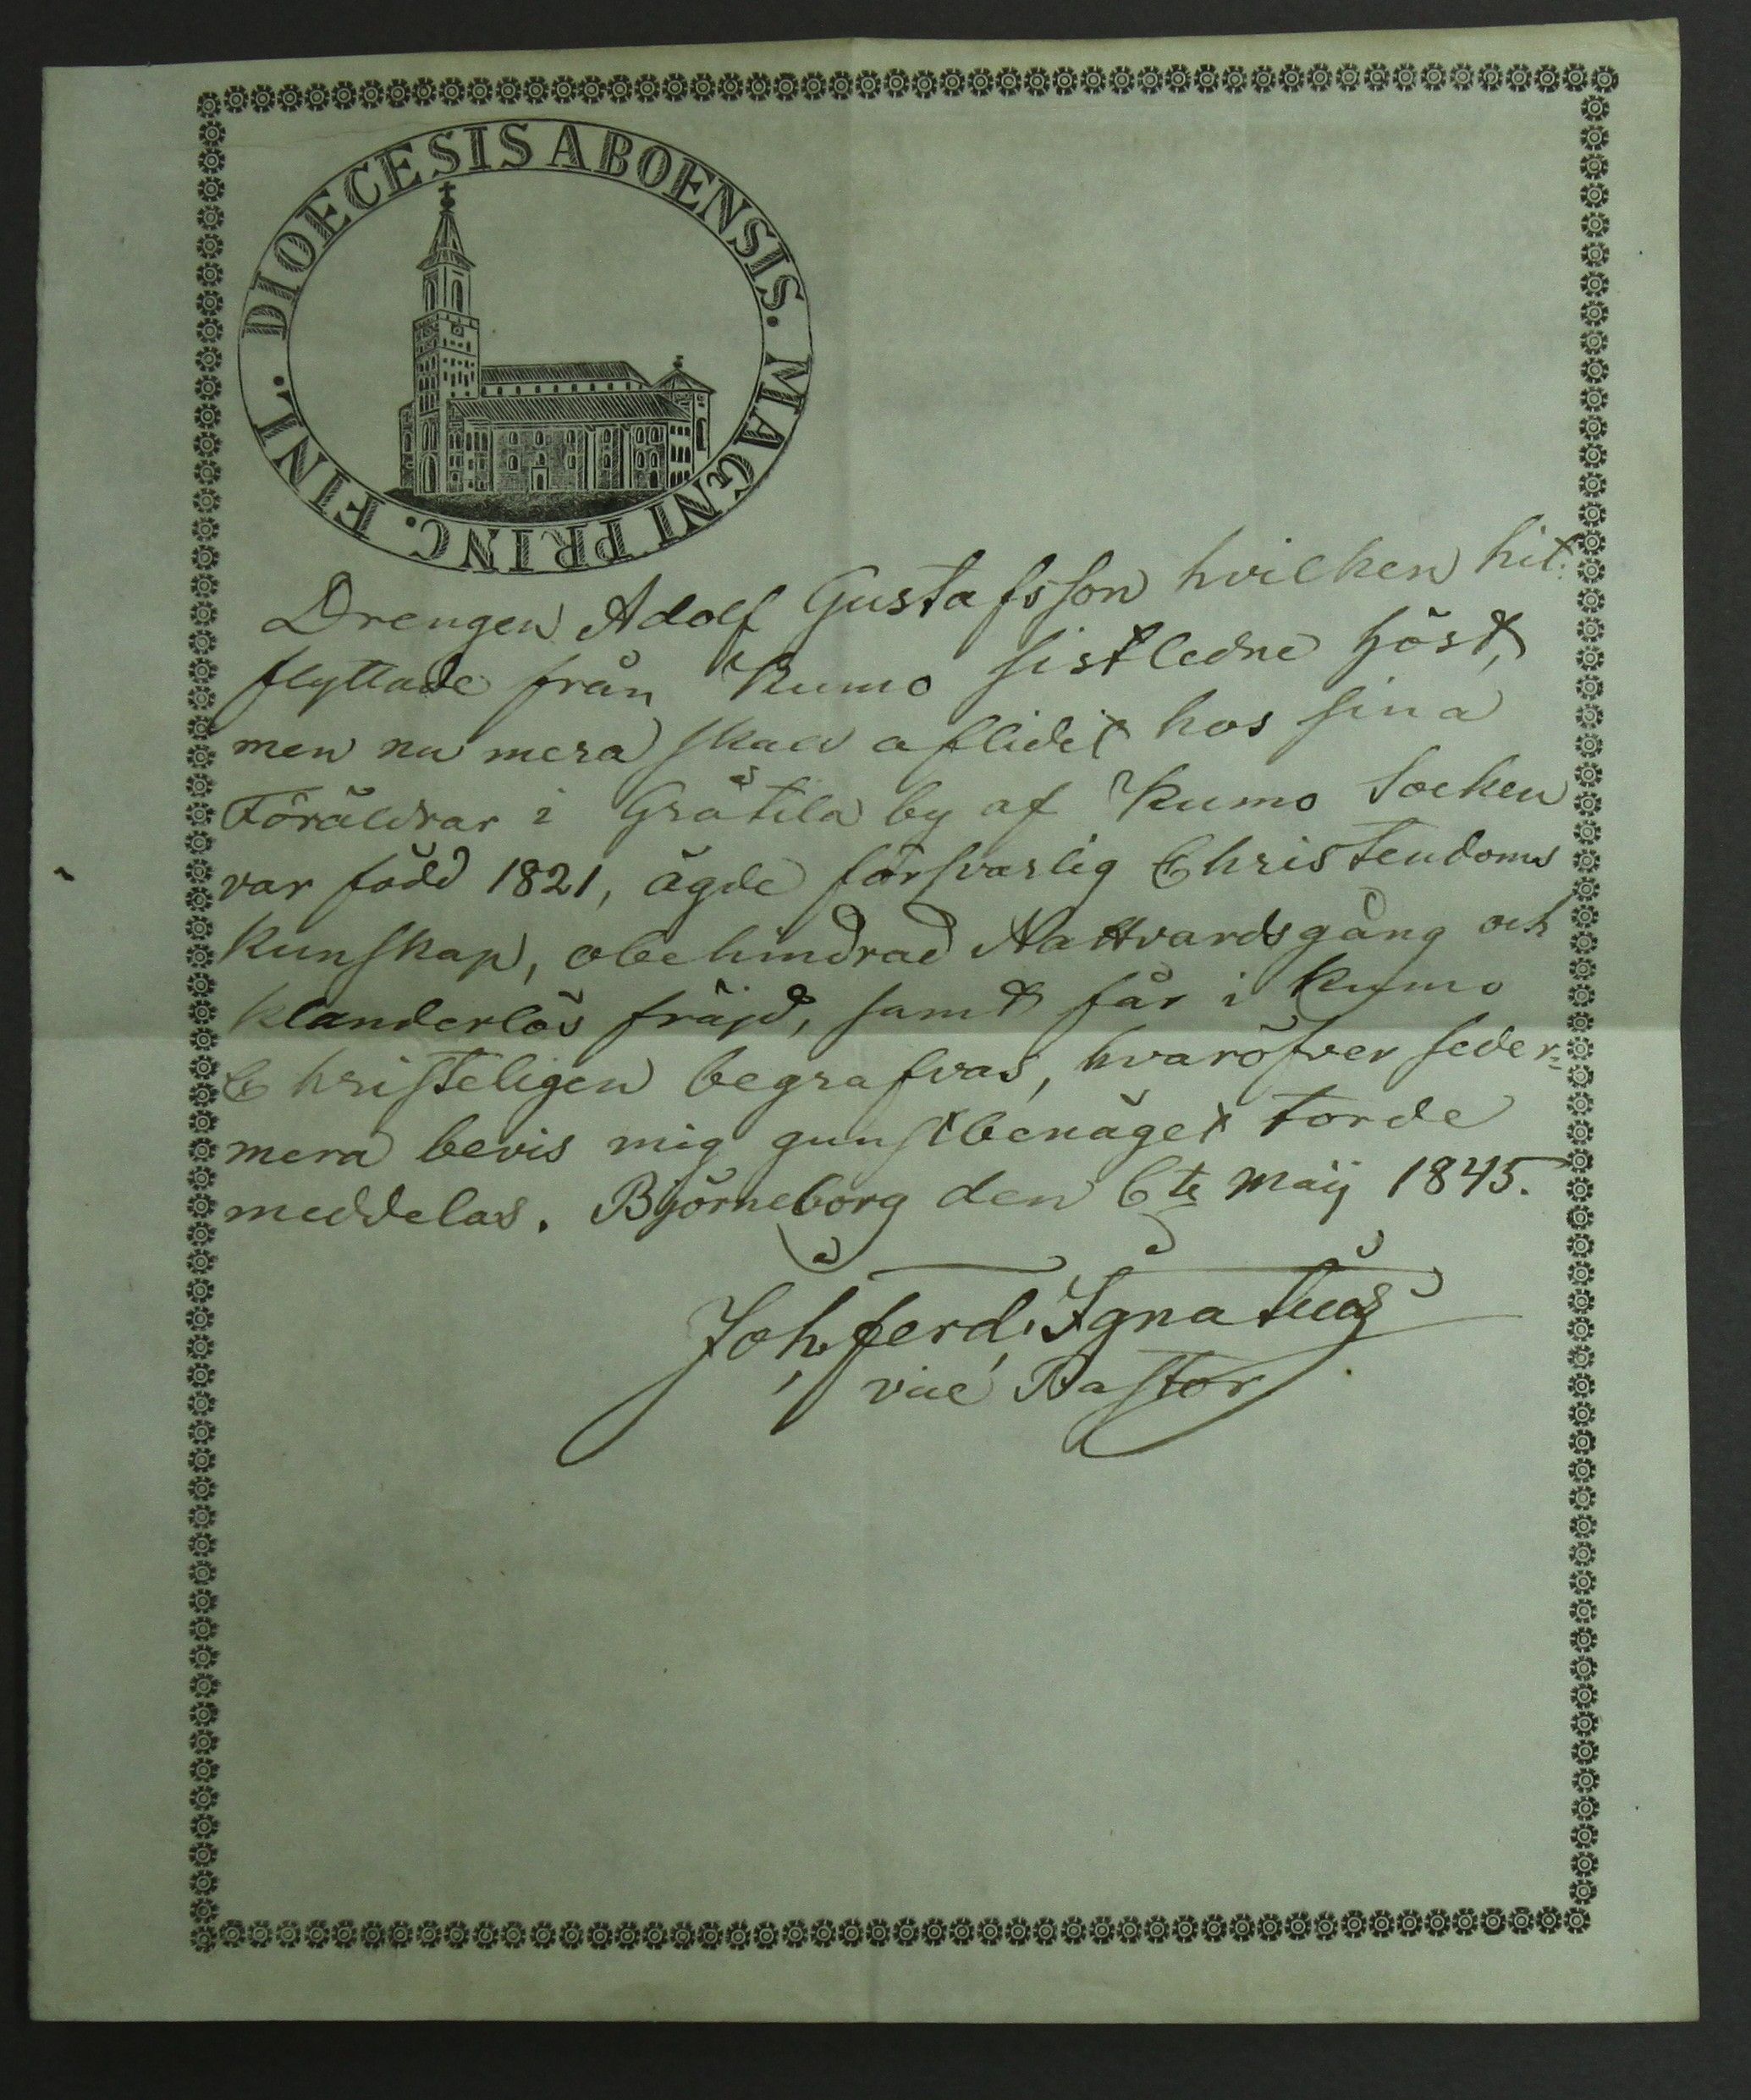 DIOECESIS ABOENSIS. MAGNI PRINC. FINL.
Drengen Adolf Gustafsson hvilken hit
flyttade från Kumo sistledne höst,
men nu mera skall aflidit hos sina
Föräldrar i Gråtila by af Kumo Socken
var född 1821, ägde försvarlig Christendoms
kunskap, obehindrad Nattvardsgång och
klanderlös fräjd, samt får i Kumo
Christeligen begrafvas, hvaröfver seder=
mera bevis mig gunstbenäget torde
meddelas. Björneborg den 6te Maij 1845.
Joh. Ferd. Ignatius
vice Pastor